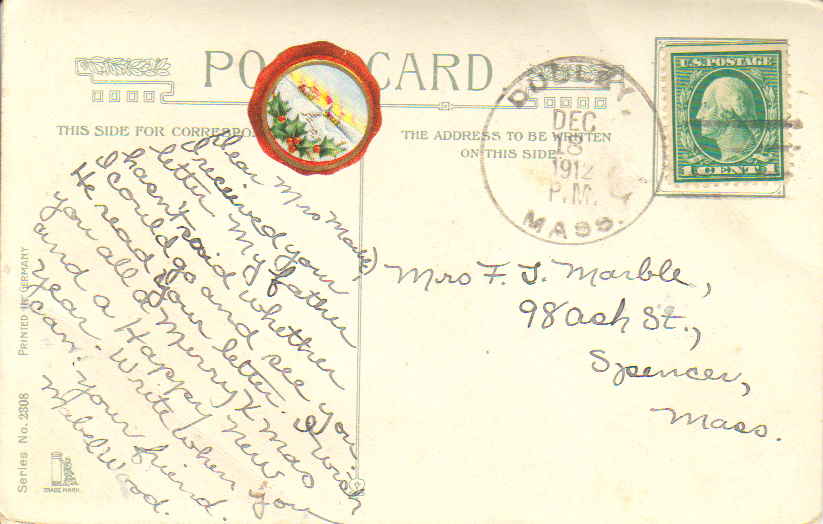 POST CARD
THIS SIDE FOR CORRESPO
THE ADDRESS TO BE WRITTEN
ON THIS SIDE
DUDLEY,
DEC
18
1912
P.M.
MASS.
U.S. POSTAGE
1 CENT 1
Dear Mrs Marble,
I received your
letter. My father
hasn't said whether
I could go and see you.
He read your letter. I wish
you all a Merry Xmas
and a Happy New
year. Write when you
can. your friend.
Mabel Wood.
Mrs F. J. Marble,
98 Ash St.,
Spencer,
Mass.
Series No. 2308 PRINTED IN GERMANY
TRADE MARK